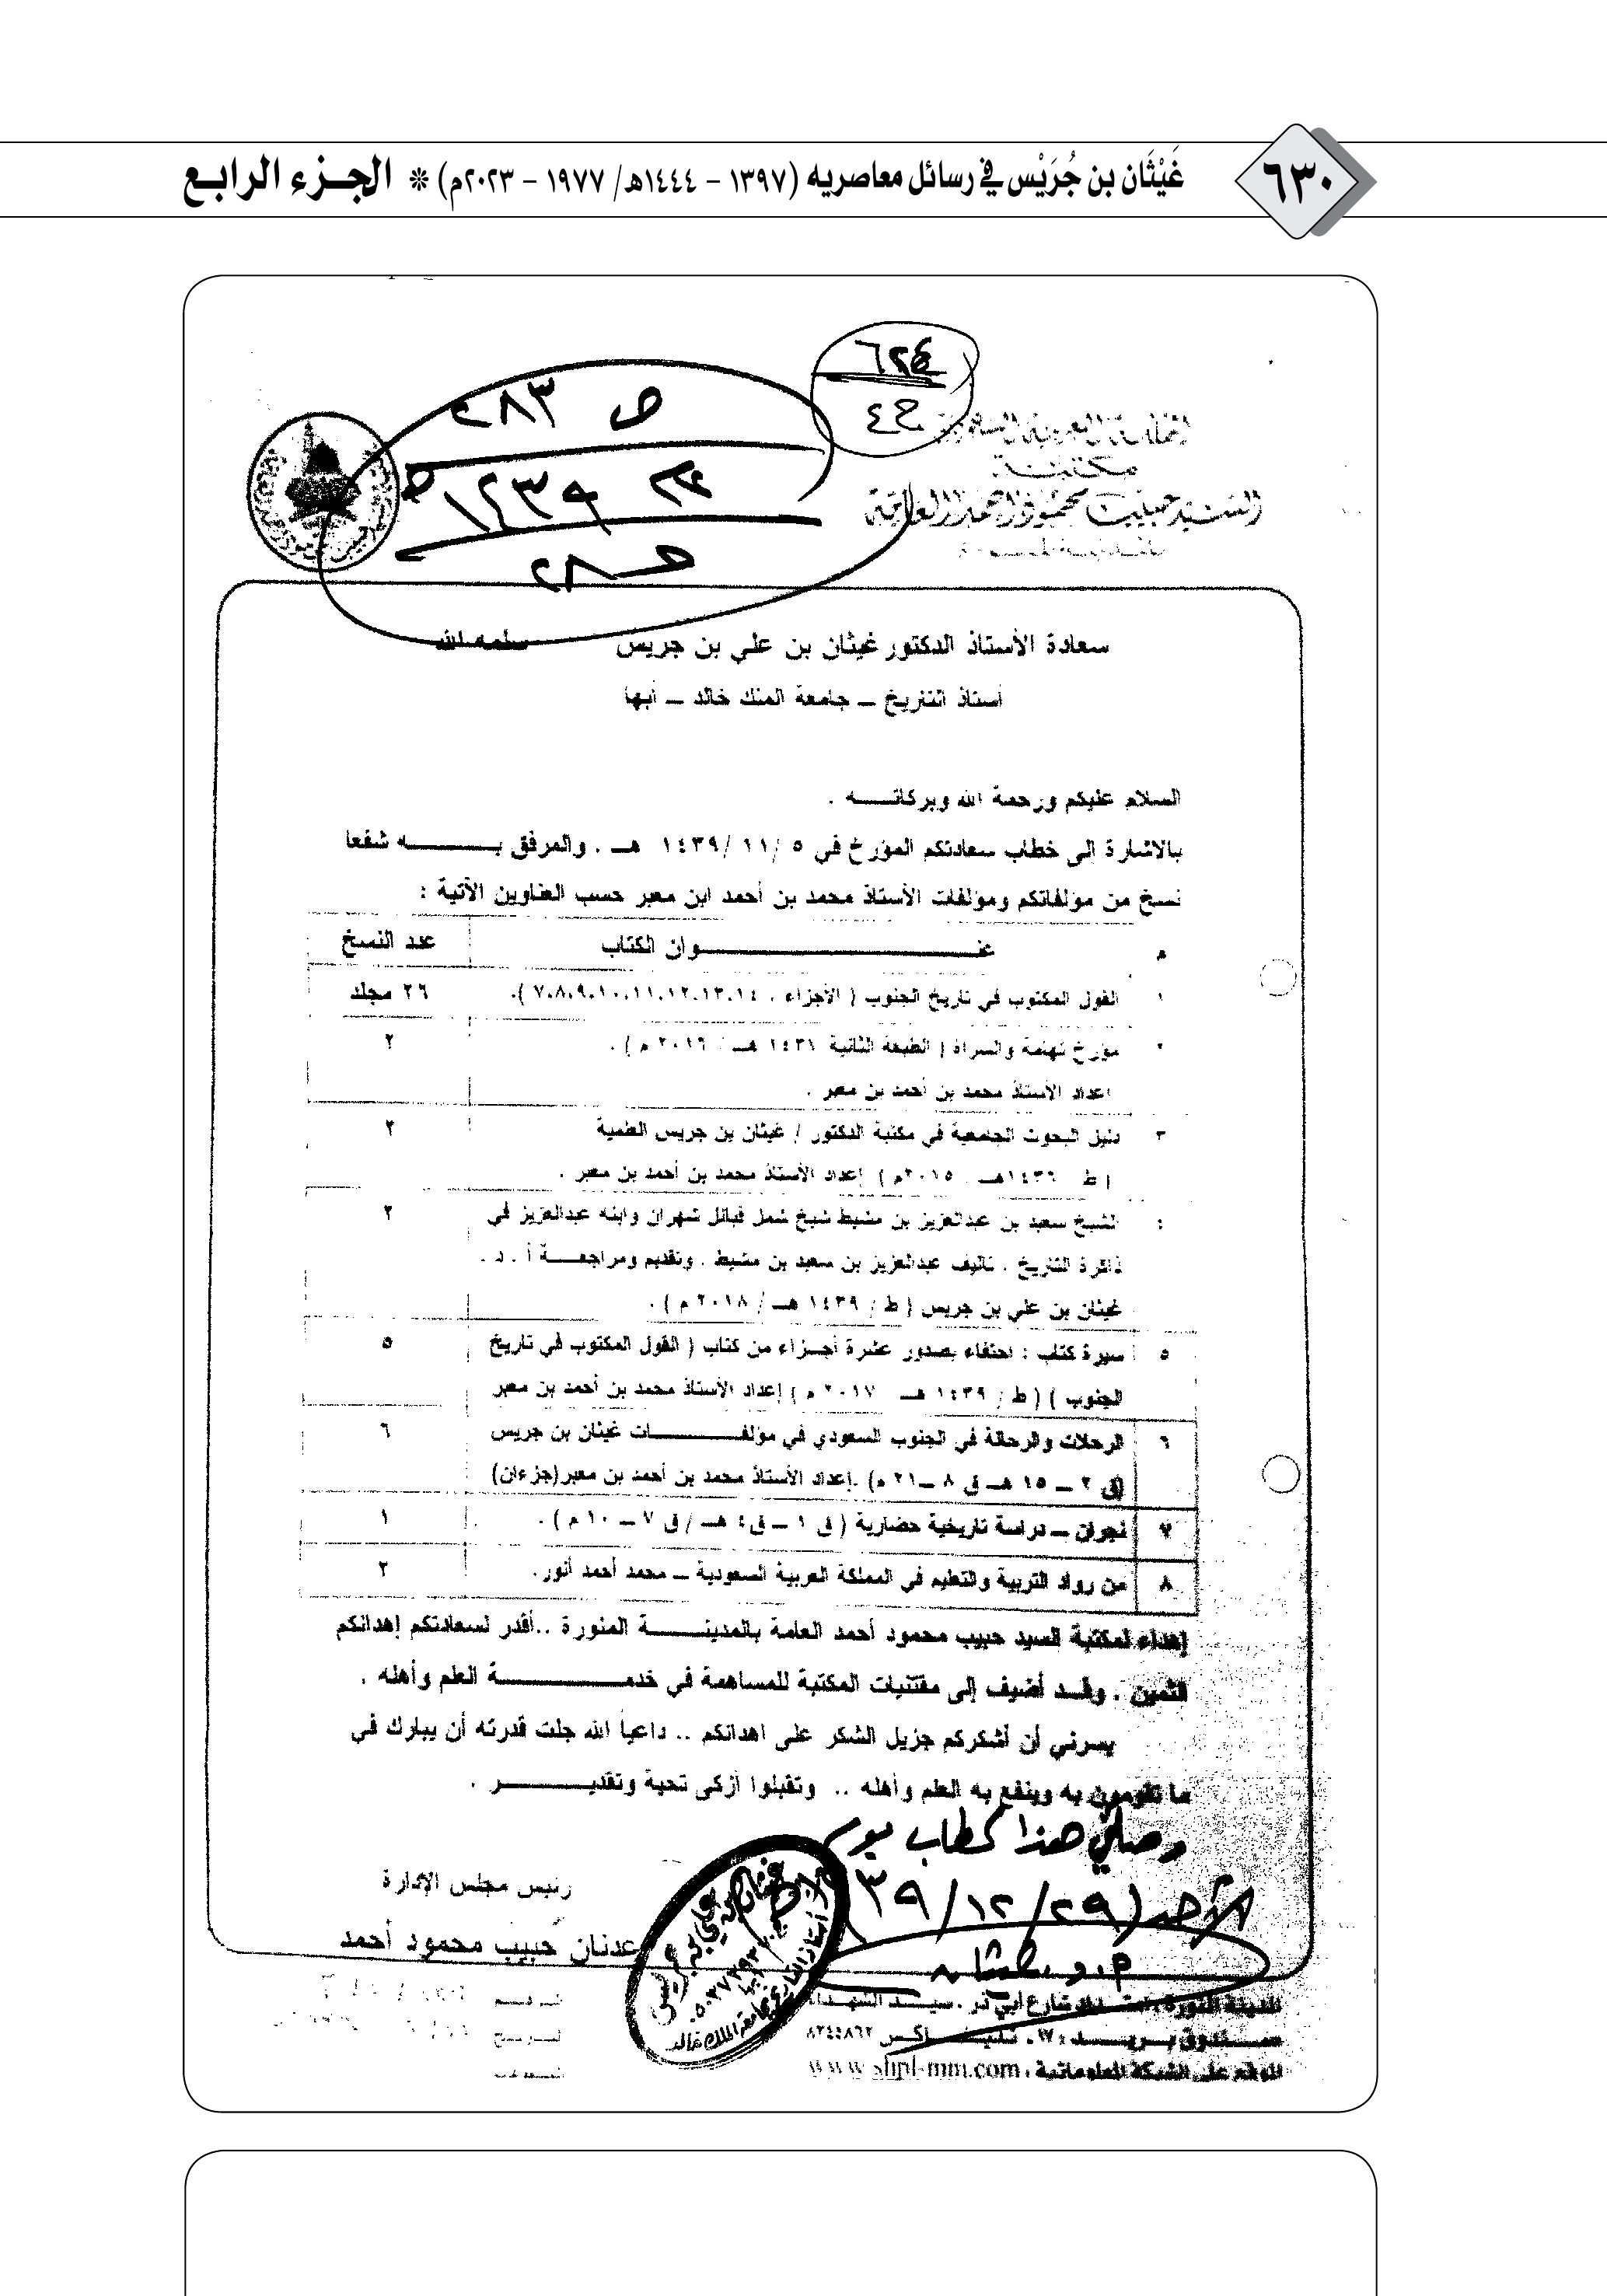 ٦٣٠
غَيْثَان بن جُرَيْس في رسائل معاصريه (١٣٩٧ – ١٤٤٤هـ/ ١٩٧٧ – ٢٠٢٣م) ❊ الجزء الرابع
٦٢٤
ص ٤٨٣
المملكة العربية السعودية
مكتبة
السيد حبيب محمود أحمد العامة
بالمدينة المنورة
سعادة الأستاذ الدكتور غيثان بن علي بن جريس سلمه الله
أستاذ التاريخ – جامعة الملك خالد – أبها
السلام عليكم ورحمة الله وبركاتـــه .
بالاشارة الى خطاب سعادتكم المؤرخ في ٥ /١١ /١٤٣٩ هـ . والمرفق بـــــه شفعا
نسخ من مؤلفاتكم ومؤلفات الأستاذ محمد بن أحمد ابن معبر حسب العناوين الآتية :
م عنـــــــوان الكتاب عدد النسخ
١ القول المكتوب في تاريخ الجنوب ( الأجزاء ، ٧،٨،٩،١٠،١١،١٢،١٣،١٤ ). ٢٦ مجلد
٢ مؤرخ تهامة والسراة ( الطبعة الثانية ١٤٣٧ هـ ٢٠١٦ م ) . ٢
اعداد الأستاذ محمد بن أحمد بن معبر .
٣ دليل البحوث الجامعية في مكتبة الدكتور / غيثان بن جريس العلمية ٢
( ط ١٤٣٦هـ ٢٠١٥م ) إعداد الأستاذ محمد بن أحمد بن معبر .
٤ الشيخ سعيد بن عبدالعزيز بن مشيط شيخ شمل قبائل شهران وابنه عبدالعزيز في ٢
ذاكرة التاريخ . تأليف عبدالعزيز بن سعيد بن مشيط . وتقديم ومراجعـــة أ . د .
غيثان بن علي بن جريس ( ط / ١٤٣٩ هـ / ٢٠١٨ م ) .
٥ سيرة كتاب : احتفاء بصدور عشرة أجـزاء من كتاب ( القول المكتوب في تاريخ ٥
الجنوب ) ( ط / ١٤٣٩ هـ ٢٠١٧ م ) إعداد الأستاذ محمد بن أحمد بن معبر
٦ الرحلات والرحالة في الجنوب السعودي في مؤلفـــــات غيثان بن جريس ٦
(ق ٢ – ١٥ هـ ق ٨ – ٢١ م) .إعداد الأستاذ محمد بن أحمد بن معبر(جزءان)
٧ نجران – دراسة تاريخية حضارية ( ق ١ – ق٤ هـ / ق ٧ – ١٠ م ) . ١
٨ من رواد التربية والتعليم في المملكة العربية السعودية – محمد أحمد أنور. ٢
إهداء لمكتبة السيد حبيب محمود أحمد العامة بالمدينـــــة المنورة ..أقدر لسعادتكم إهدائكم
الثمين . وقـد أضيف إلى مقتنيات المكتبة للمساهمة في خدمـــــــة العلم وأهله .
يسرني أن أشكركم جزيل الشكر على اهدائكم .. داعياً الله جلت قدرته أن يبارك في
ما تقومون به وينفع به العلم وأهله .. وتقبلوا أزكى تحية وتقديـــــر .
وصلني هذا الخطاب يوم
الأحد (٢٩/١٢/٣٩
رئيس مجلس الإدارة
عدنان حبيب محمود أحمد
غيثان بن علي بن جريس
أستاذ التاريخ بجامعة الملك خالد
المدينة المنورة . امتـداد شارع أبي ذر . سيـد الشهداء
صـنـدوق بـريـد . تـليـفـاكـس ٨٢٤٤٨٦٢
الموقع على الشبكة المعلوماتية . www.shpl-mm.com